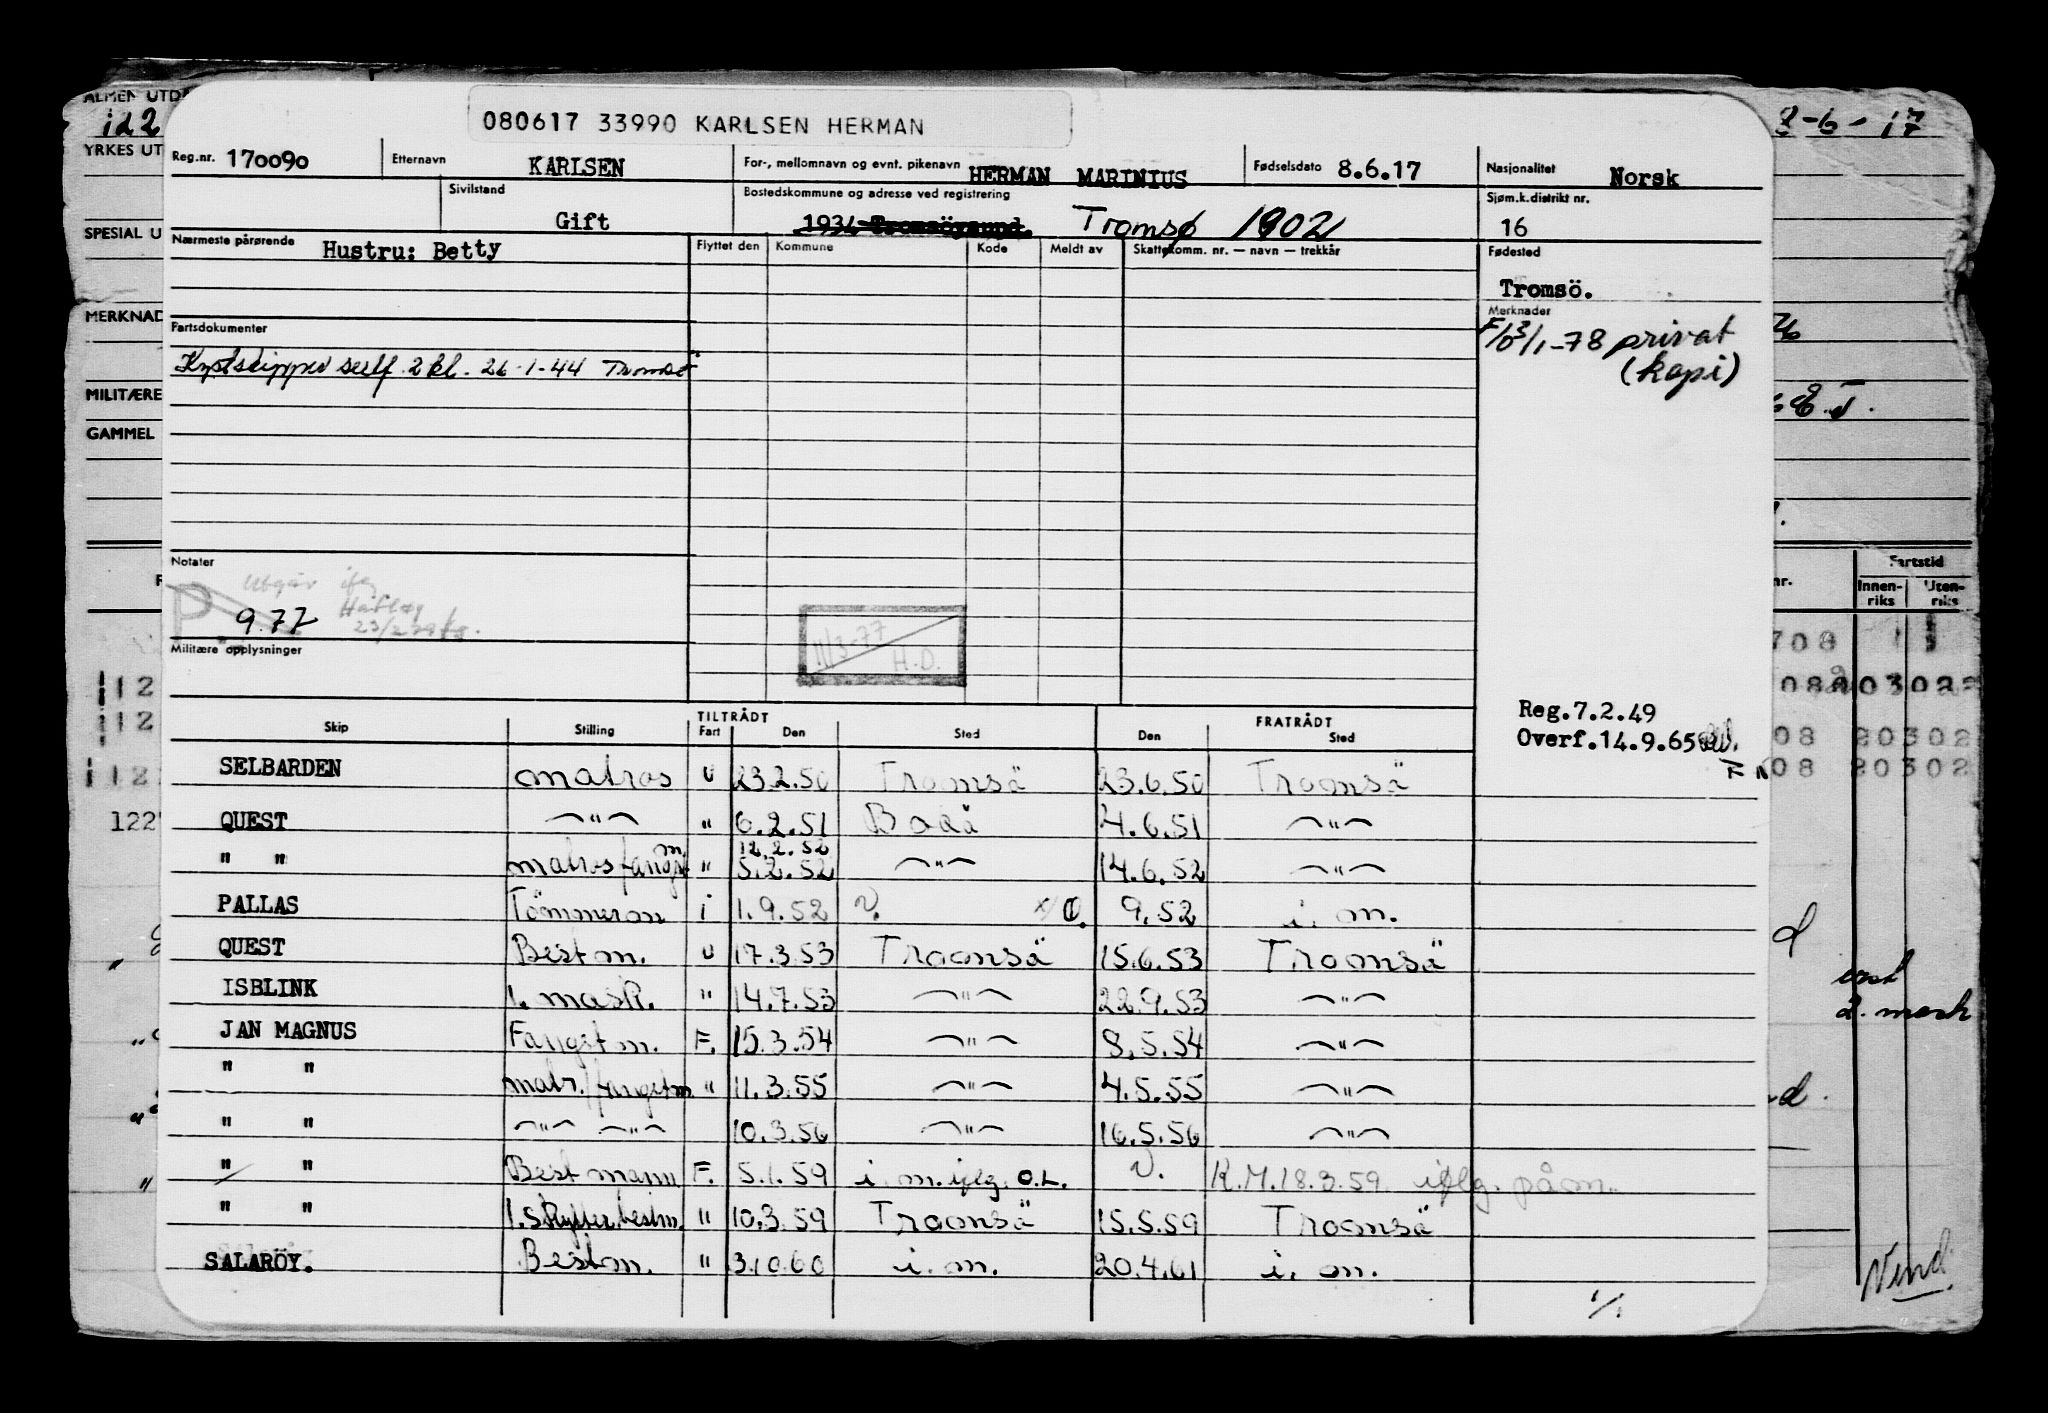 ALMEN UTD
080617 33990 KARLSEN HERMAN
8-6-17
YRKES UT
Reg.nr. 170090 Etternavn KARLSEN For-, mellomnavn og evnt. pikenavn HERMAN MARINIUS Fødselsdato 8.6.17 Nasjonalitet Norsk
Sivilstand Gift Bostedskommune og adresse ved registrering 1934 Tromsöysund. Tromsø 1902 Sjøm.k.distrikt nr. 16
SPESIAL U
Nærmeste pårørende Hustru: Betty Flyttet den Kommune Kode Meldt av Skattekomm. nr. — navn — trekkår Fødested
Tromsö.
MERKNAD
Merknader
Fartsdokumenter
13/1-78 privat
(kopi)
Kystskipper sertf. 2 kl. 26-1-44 Tromsö
MILITÆRE
GAMMEL
Notater
Utgår iflg
9.77
11/3-77
H.D.
Militære opplysninger
Fartstid
Innen-riks Uten-riks
Reg.7.2.49
Overf.14.9.65
TILTRÅDT FRATRÅDT
Skip Stilling Fart Den Sted Den Sted
SELBARDEN matros U 23.2.50 Tromsä 23.6.50 Tromsä
QUEST —"— " 6.2.51 Bodä 4.6.51 —"—
12.2.52
" " matros fangstm " 5.2.52 —"— 14.6.52 —"—
PALLAS Tömmerm i 1.9.52 V. 9.52 i. m.
QUEST Bestm. U 17.3.53 Tromsä 15.6.53 Tromsä
ISBLINK 1. mask. " 14.7.53 —"— 22.9.53 —"—
JAN MAGNUS Fangstm. F. 15.3.54 —"— 8.5.54 —"—
" " matr./fangstm " 11.3.55 —"— 4.5.55 —"—
" " —"— —"— 10.3.56 —"— 16.5.56 —"—
" " Bestmann F. 5.1.59 i. m. iflg. O.L. V. R.M. 18.3.59 iflg. påm.
" " 1. skytter, bestm. " 10.3.59 Tromsä 15.5.59 Tromsä
SALARÖY. Bestm. " 3.10.60 i. m. 20.4.61 i. m.
2. mask
Vend